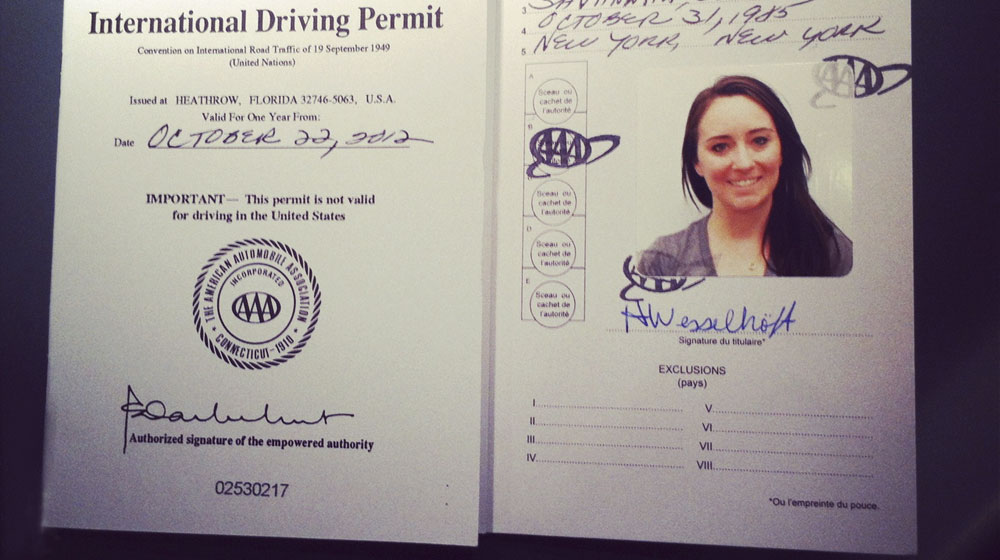 International Driving Permit
Convention on International Road Traffic of 19 September 1949
(United Nations)
Issued at HEATHROW, FLORIDA 32746-5063, U.S.A.
Valid For One Year From:
Date OCTOBER 22, 2012
IMPORTANT— This permit is not valid
for driving in the United States
THE AMERICAN AUTOMOBILE ASSOCIATION
INCORPORATED
AAA
CONNECTICUT-1910
Authorized signature of the empowered authority
02530217
3
4 OCTOBER 31, 1985
5 NEW YORK, NEW YORK
AAA
A
Sceau ou
cachet de
l'autorité
B
AAA
Sceau ou
cachet de
l'autorité
D
Sceau ou
cachet de
l'autorité
E
Sceau ou
cachet de
l'autorité
HWesselhöft
Signature du titulaire*
EXCLUSIONS
(pays)
I. V.
II. VI.
III. VII.
IV. VIII.
*Ou l'empreinte du pouce.